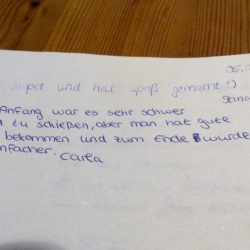 05.
super und hat spaß gemacht :)
Stina
Anfang war es sehr schwer
zu schießen, aber man hat gute
bekommen und zum Ende wurde
einfacher. Carla